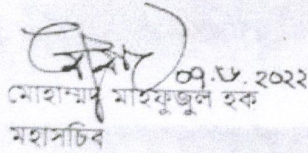 ০৭.৮.২০২২
মোহাম্মদ মাহফুজুল হক
মহাসচিব